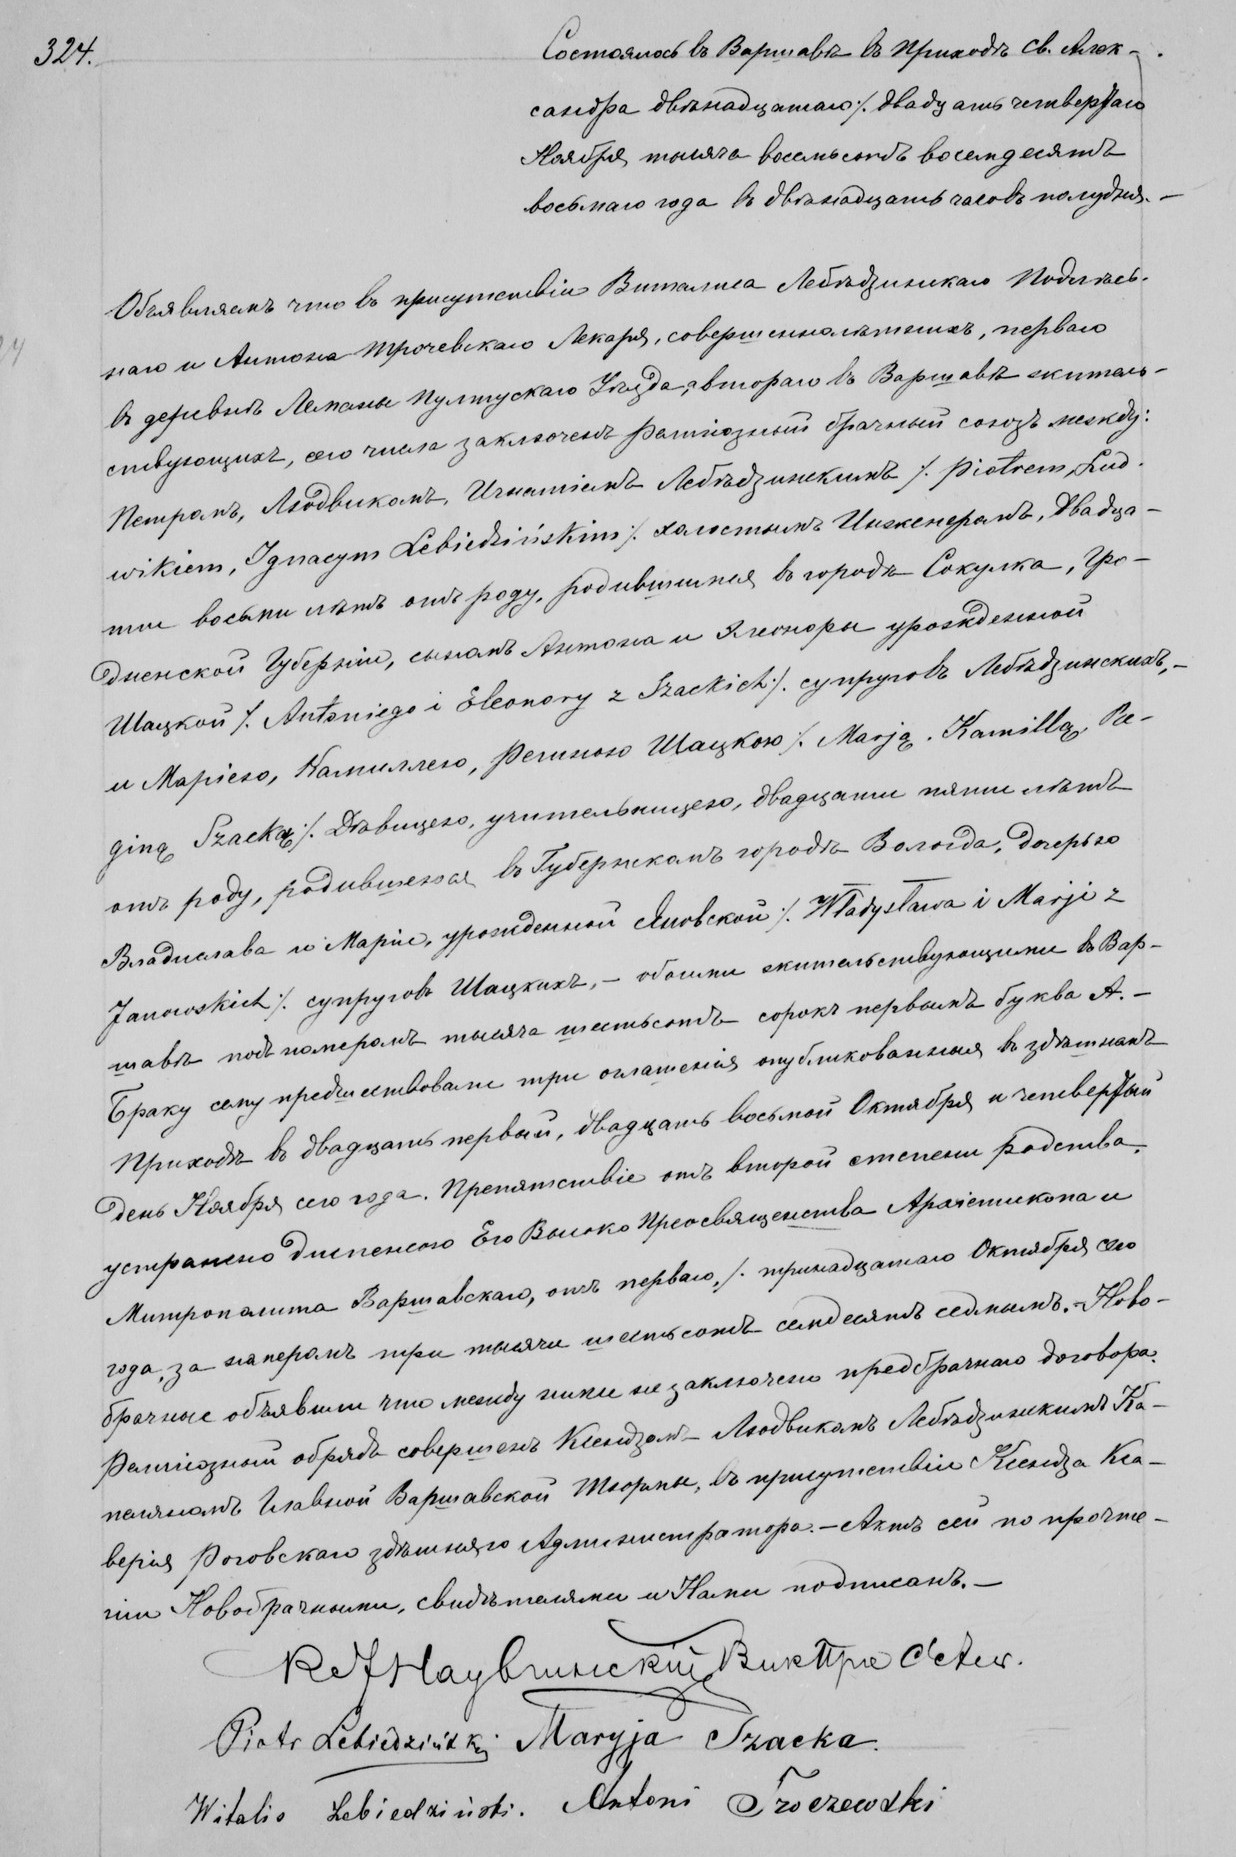 324.
Состоялось въ Варшавѣ въ Приходѣ Св. Алек-
сандра двѣнадцатаго /. двадцать четвертаго
Ноября тысяча восемьсотъ восемдесятъ
восьмаго года въ двѣнадцать часовъ полудня. —
Объявляемъ что въ присутствіи Виталиса Лебѣдзинскаго Подлѣсь-
наго и Антона Трочевскаго Лекаря, совершеннолѣтнихъ, перваго
въ деревнѣ Леманы Пултускаго Уѣзда, втораго въ Варшавѣ житель-
ствующихъ, сего числа заключенъ религіозный брачный союзъ между:
Петромъ, Людвикомъ, Игнатіемъ Лебѣдзинскимъ /. Piotrem, Lud-
wikiem, Ignacym Lebiedzińskim /. холостымъ Инженеромъ, двадца-
ти восьми лѣтъ отъ роду, родившимся въ городѣ Сокулка, Гро-
дненской Губерніи, сыномъ Антона и Элеоноры урожденной
Шацкой /. Antoniego i Eleonory z Szackich /. супруговъ Лебѣдзинскихъ, —
и Маріею, Камиллею, Региною Шацкою /. Marją, Kamillą, Re-
giną Szacką /. Дѣвицею, учительницею, двадцати пяти лѣтъ
отъ роду, родившеюся въ Губернскомъ городѣ Вологда, дочерью
Владислава и Маріи, урожденной Яновской /. Władysława i Marji z
Janowskich /. супруговъ Шацкихъ, — обоими жительствующими въ Вар-
шавѣ подъ номеромъ тысяча шестьсотъ сорокъ первымъ буква А. —
Браку сему предшествовали три оглашенія опубликованныя въ здѣшнемъ
Приходѣ въ двадцать первый, двадцать восьмой Октября и четвертый
день Ноября сего года. Препятствіе отъ второй степени родства,
устранено диспенсою Его Высоко Преосвященства Архіепископа и
Митрополита Варшавскаго, отъ перваго, /. тринадцатаго Октября сего
года, за номеромъ три тысячи шестьсотъ семдесятъ седмымъ. — Ново-
брачные объявили что между ними не заключено предбрачнаго договора.
Религіозный обрядъ совершенъ Ксендзомъ Людвикомъ Лебѣдзинскимъ Ка-
пеляномъ Главной Варшавской Тюрмы, въ присутствіи Ксендза Кса-
верія Роговскаго здѣшняго Администратора. — Актъ сей по прочте-
ніи Новобрачными, свидѣтелями и Нами подписанъ. —
Вик
Piotr Lebiedziński Maryja Szacka.
Witalis Lebiedziński. Antoni Troczewski